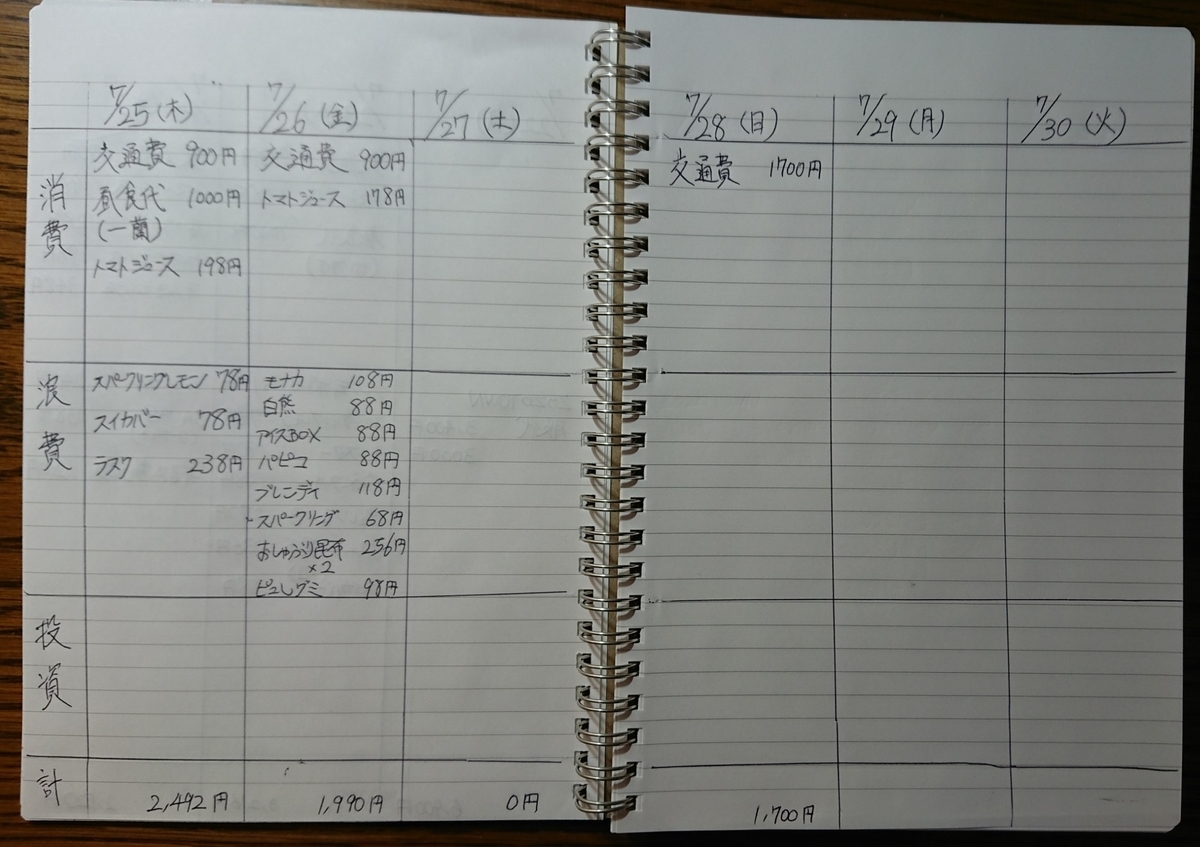 7/25(木) 7/26(金) 7/27(土) 7/28(日) 7/29(月) 7/30(火)
消費
交通費 900円
昼食代 1000円
(一蘭)
トマトジュース 198円
交通費 900円
トマトジュース 178円
交通費 1700円
浪費
スパークリングレモン 78円
スイカバー 78円
ラスク 238円
モナカ 108円
白熊 88円
アイスBOX 88円
パピコ 88円
ブレンディ 118円
スパークリング 68円
おしゃぶり昆布 256円
×2
ピュレグミ 98円
投資
計 2,492円 1,990円 0円 1,700円